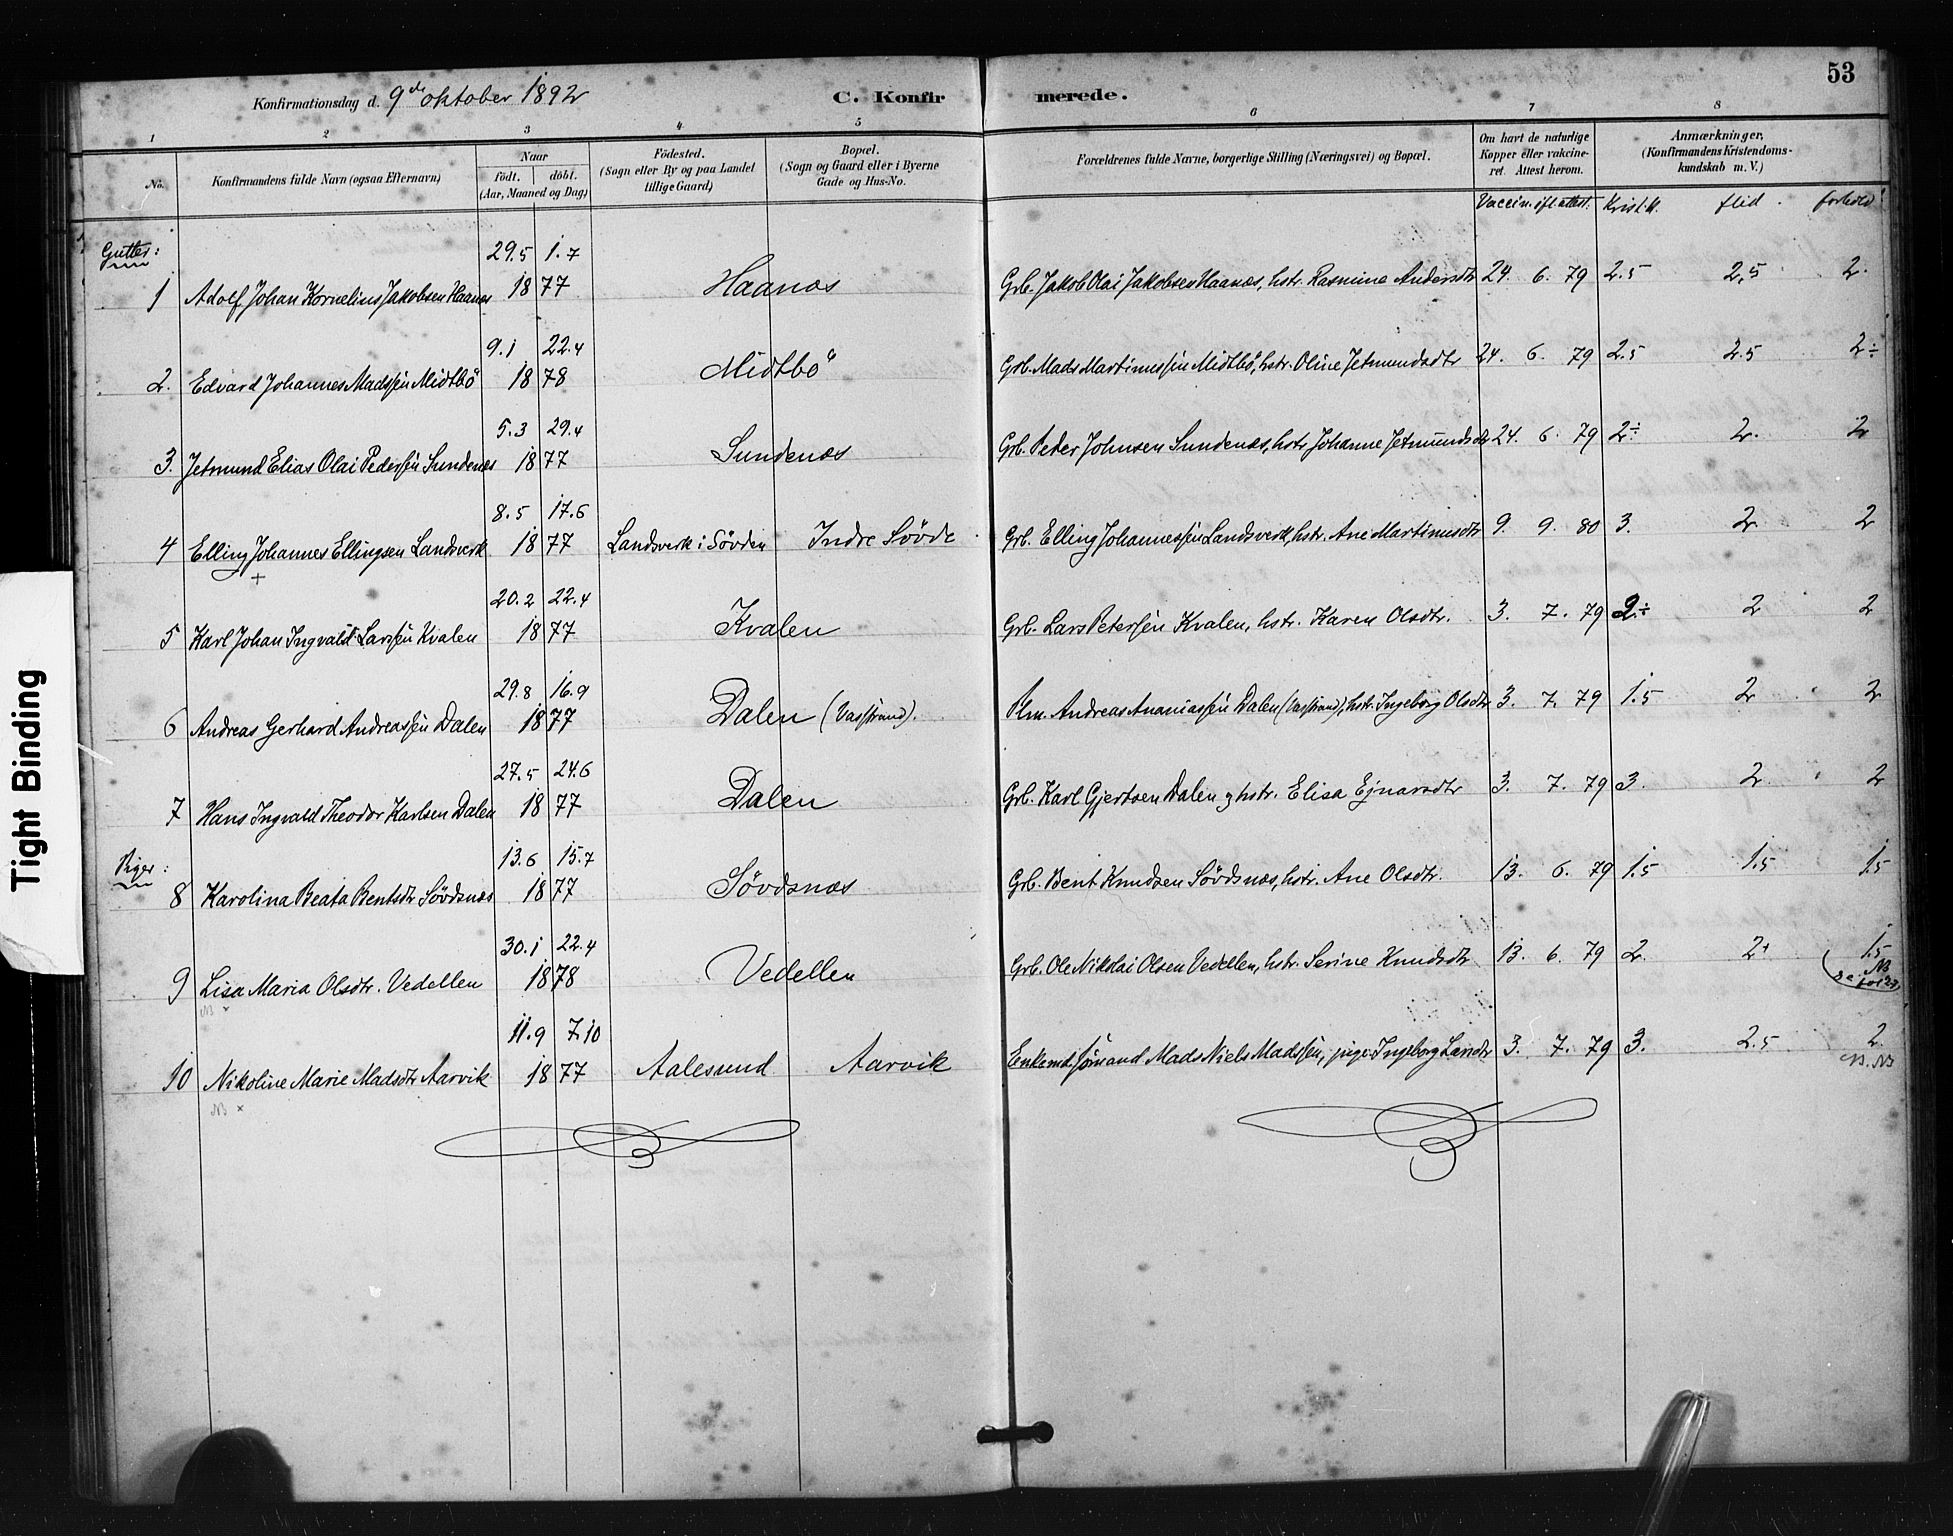 53
Konfirmationsdag d. 9de oktober 1892
C. Konfirmerede.
1 2 3 4 5 6 7 8
No.
Konfirmandens fulde Navn (ogsaa Efternavn)
Naar
födt. döbt.
(Aar, Maaned og Dag)
Födested.
(Sogn eller By og paa Landet
tillige Gaard)
Bopæl.
(Sogn og Gaard eller i Byerne
Gade og Hus-No.
Forældrenes fulde Navne, borgerlige Stilling (Næringsvei) og Bopæl.
Om havt de naturlige
Kopper eller vakcine-
ret. Attest herom.
Anmærkninger,
(Konfirmandens Kristendoms-
kundskab m. V.)
Vaccin. ifl. attest. Krist.k. flid. forhold
Gutter:
29.5 1.7
1 Adolf Johan Kornelius Jakobsen Haanes 1877 Haanæs Grb. Jakob Olai Jakobsen Haanæs, hstr. Rasmine Andersdtr 24. 6. 79 2.5 2,5 2.
9.1 22.4
2. Edvard Johannes Madssen Midtbö 1878 Midtbö Grb. Mads Martinussen Midtbö, hstr. Oline Jetmundsdtr 24. 6. 79 2.5 2.5 2÷
5.3 29.4
3. Jetmund Elias Olai Pedersen Sundenæs 1877 Sundenæs Grb. Peder Johnsen Sundenæs, hstr. Johanne Jetmundsdtr 24. 6. 79 2÷ 2. 2
8.5 17.6
4 Elling Johannes Ellingsen Landsverk 1877 Landsverk i Sövden Indre Sövde Grb. Elling Johannessen Landsverk, hstr. Ane Martinusdtr 9. 9. 80 3. 2 2
+
20.2 22.4
5 Karl Johan Ingvald Larssen Kvalen 1877 Kvalen Grb. Lars Petersen Kvalen, hstr. Karen Olsdtr. 3. 7. 79 2÷ 2 2
29.8 16.9
6 Andreas Gerhard Andreassen Dalen 1877 Dalen (Vasstrand). Plm. Andreas Ananiassen Dalen (Vasstrand), hstr. Ingeborg Olsdtr 3. 7. 79 1.5 2 2
27.5 24.6
7 Hans Ingvald Theodor Karlsen Dalen 1877 Dalen Grb. Karl Gjertsen Dalen og hstr. Elisa Ejnarsdtr 3. 7. 79 3. 2 2
Piger:
13.6 15.7
8 Karolina Beata Bentsdtr Sövdsnæs 1877 Sövdsnæs Grb. Bent Knudsen Sövdsnæs, hstr. Ane Olsdtr. 13. 6. 79 1.5 1.5 1.5
30.1 22.4
9 Lisa Maria Olsdtr. Vedellen 1878 Vedellen Grb. Ole Nikolai Olsen Vedellen, hstr. Serine Knudsdtr 13. 6. 79 2. 2+ 1.5
NB ×
NB
11.9 7.10
10 Nikoline Marie Madsdtr Aarvik 1877 Aalesund Aarvik Enkemd. Mads Niels Madssen, pige Ingeborg 3. 7. 79 3. 2.5 2.
NB × N.NB
Tight Binding